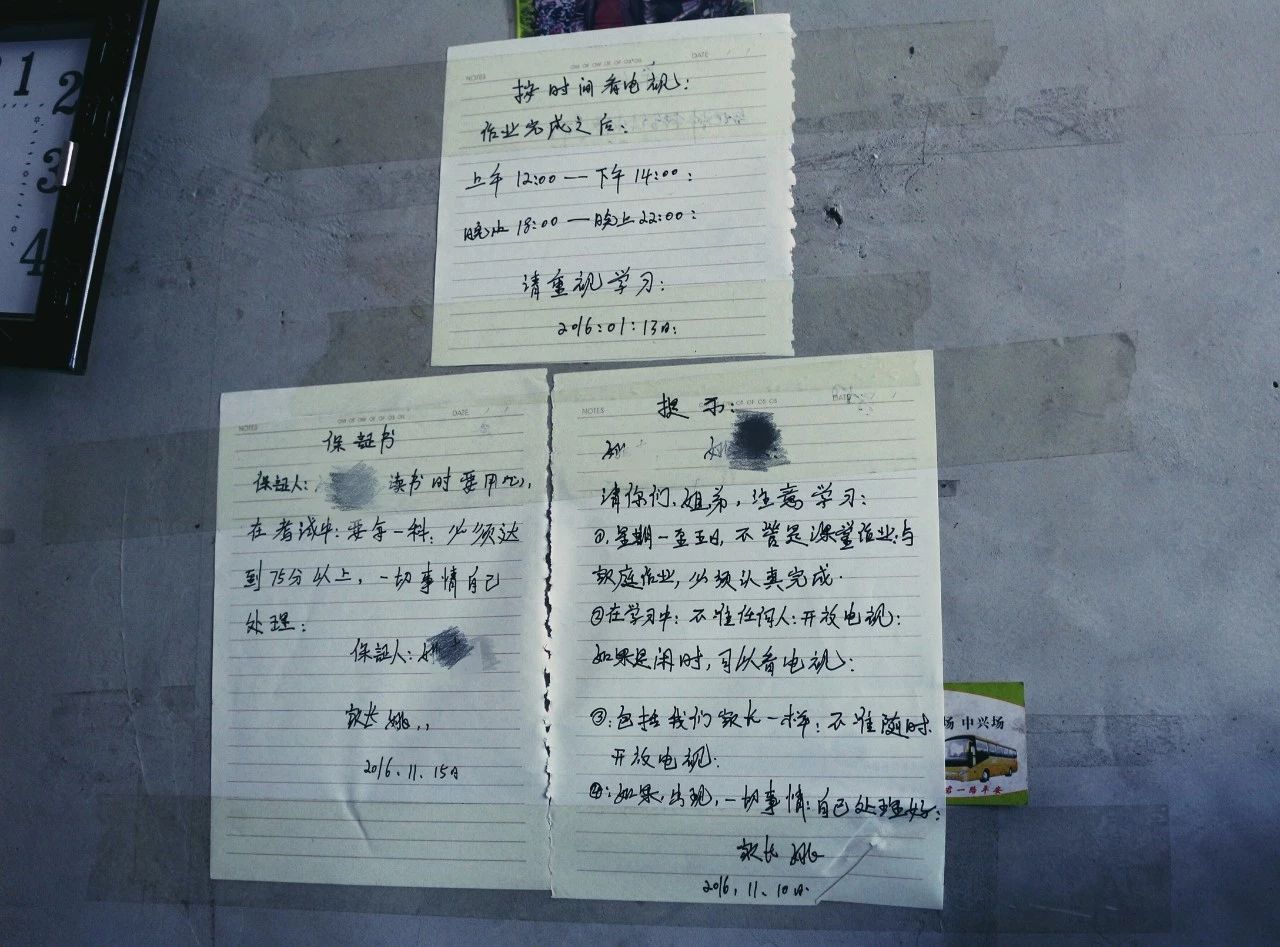 1
2
3
4
NOTES
DATE / /
按时间看电视：
作业完成之后：
上午 12:00 — 下午 14:00：
晚上 18:00 — 晚上 22:00：
请重视学习：
2016:01:13日:
NOTES
DATE / /
保証书
保証人： 读书时要用心，
在考试中：要每一科：必须达
到75分以上，一切事情自己
处理：
保証人：姚
家长 姚
2016.11.15日
NOTES
DATE
提示：
姚 姚
请你们、姐弟，注意学习：
①，星期一至五日，不管是课堂作业与
家庭作业，必须认真完成.
②在学习中：不准任何人：开放电视：
如果是闲时，可以看电视：
③：包括我们家长一样：不准随时
开放电视.
④：如果，出现，一切事情：自己处理好：
家长 姚
2016.11.10日.
场 中兴场
一路平安